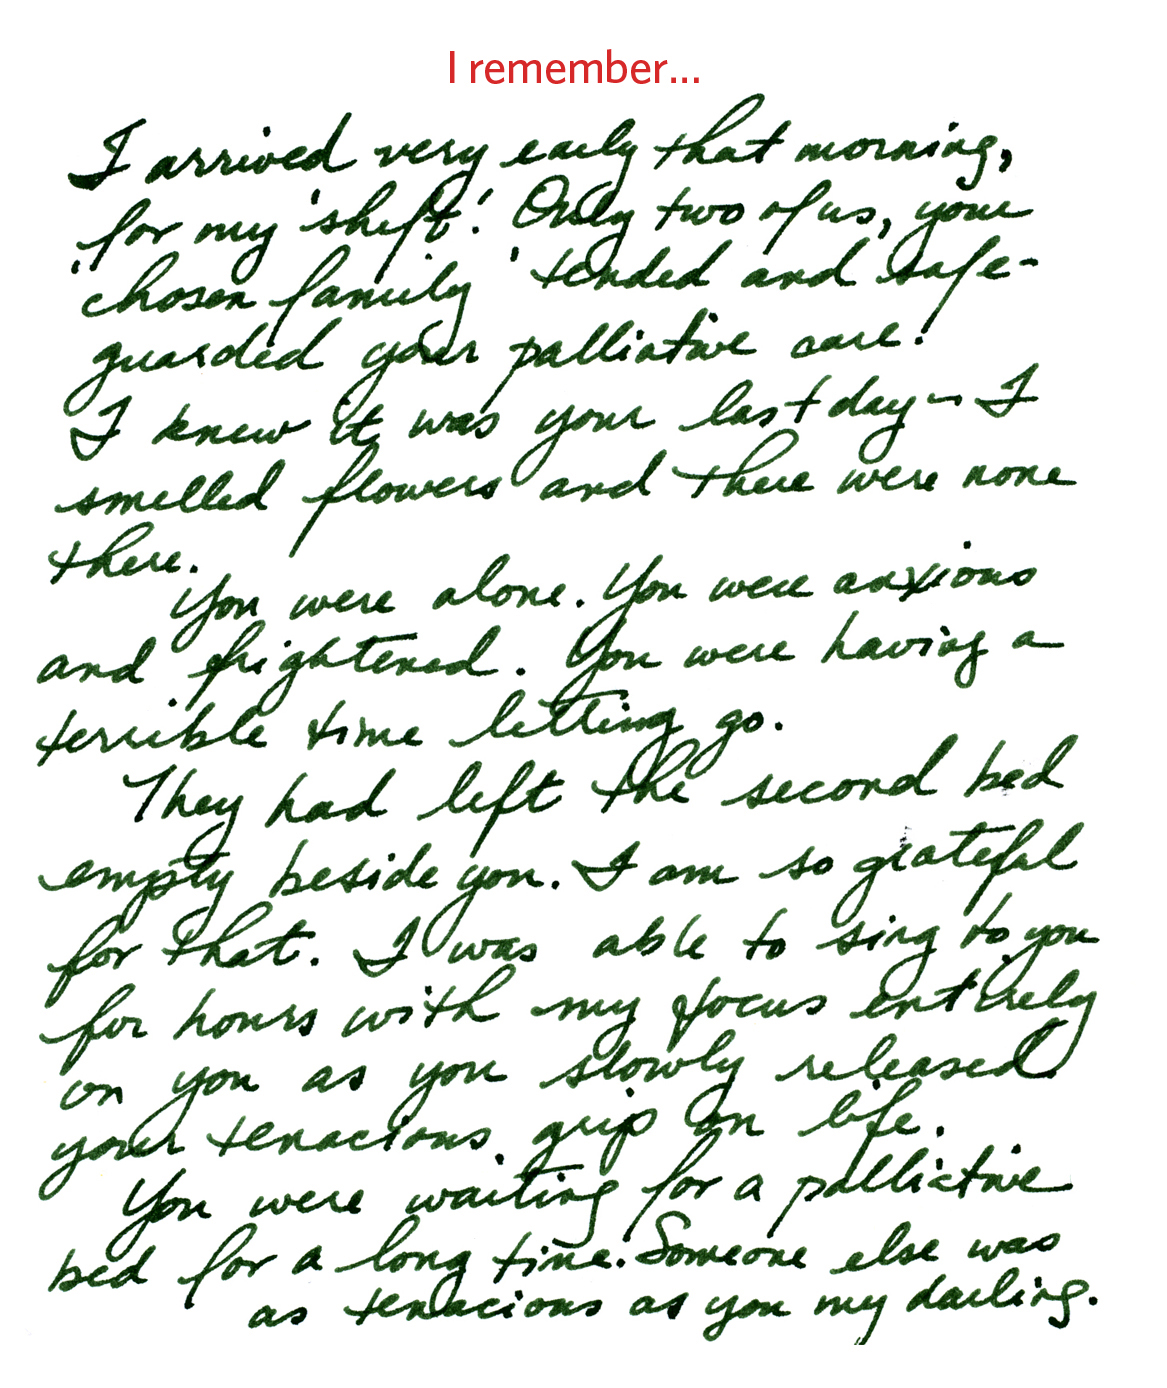 I remember...
I arrived very early that morning,
for my 'shift'. Only two of us, your
'chosen family' tended and safe-
guarded your palliative care.
I knew it was your last day - I
smelled flowers and there were none
there.
You were alone. You were anxious
and frightened. You were having a
terrible time letting go.
They had left the second bed
empty beside you. I am so grateful
for that. I was able to sing to you
for hours with my focus entirely
on you as you slowly released
your tenacious grip on life.
You were waiting for a palliative
bed for a long time. Someone else was
as tenacious as you my darling.